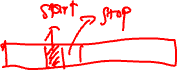 start
stop